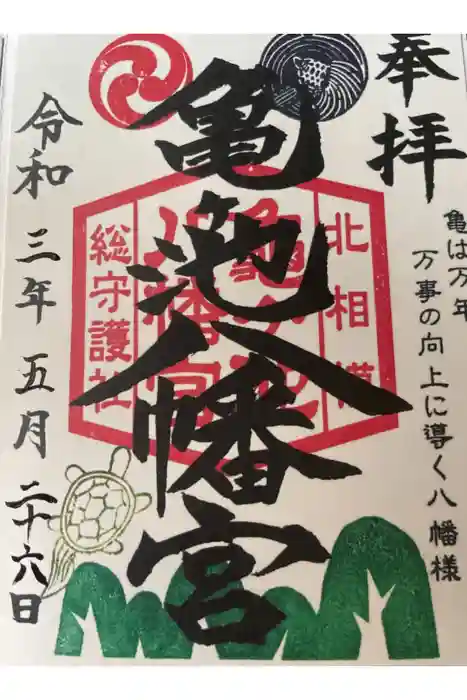 奉拝
亀は万年
万事の向上に導く八幡様
亀池八幡宮
北相模
亀の池
八幡宮
総守護社
令和三年五月二十六日